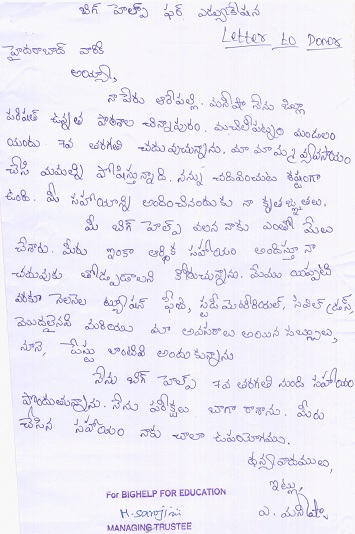 బిగ్ హెల్ప్ ఫర్ ఎడ్యుకేషన్
Letter to Donor
హైదరాబాద్ వారికి
అయ్యా,
నా పేరు ఆరేపల్లి. మనీషా నేను జిల్లా
పరిషత్ ఉన్నత పాఠశాల చిన్నాపురం. మచిలీపట్నం మండలం
యందు 7వ తరగతి చదువుచున్నాను. మా మామ్మ వ్యవసాయం
చేసి మమ్మల్ని పోషిస్తున్నాది. నన్ను చదివించుట కష్టంగా
ఉంది. మీ సహాయాన్ని అందించినందుకు నా కృతజ్ఞతలు.
మీ బిగ్ హెల్ప్ వలన నాకు ఎంతో మేలు
చేశారు. మీరు ఇంకా ఆర్థిక సహాయం అందిస్తూ నా
చదువుకు తోడ్పడాలని కోరుచున్నాను. మేము యిప్పటి
వరకూ నెలనెల ట్యూషన్ ఫీజు, స్టడీ మెటీరియల్, సివిల్ డ్రస్,
మొదలైనవి మరియు మా అవసరాలు అయిన సబ్బులు,
నూనె, పేస్టు లాంటివి అందుకున్నాను
నేను బిగ్ హెల్ప్ 7వ తరగతి నుండి సహాయం
పొందుతున్నాను. నేను పరీక్షలు బాగా రాశాను. మీరు
చేసిన సహాయం నాకు చాలా ఉపయోగము.
ధన్యవాదములు,
ఇట్లు,
ఎ. మనీషా
For BIGHELP FOR EDUCATION
M. Sarojini
MANAGING TRUSTEE